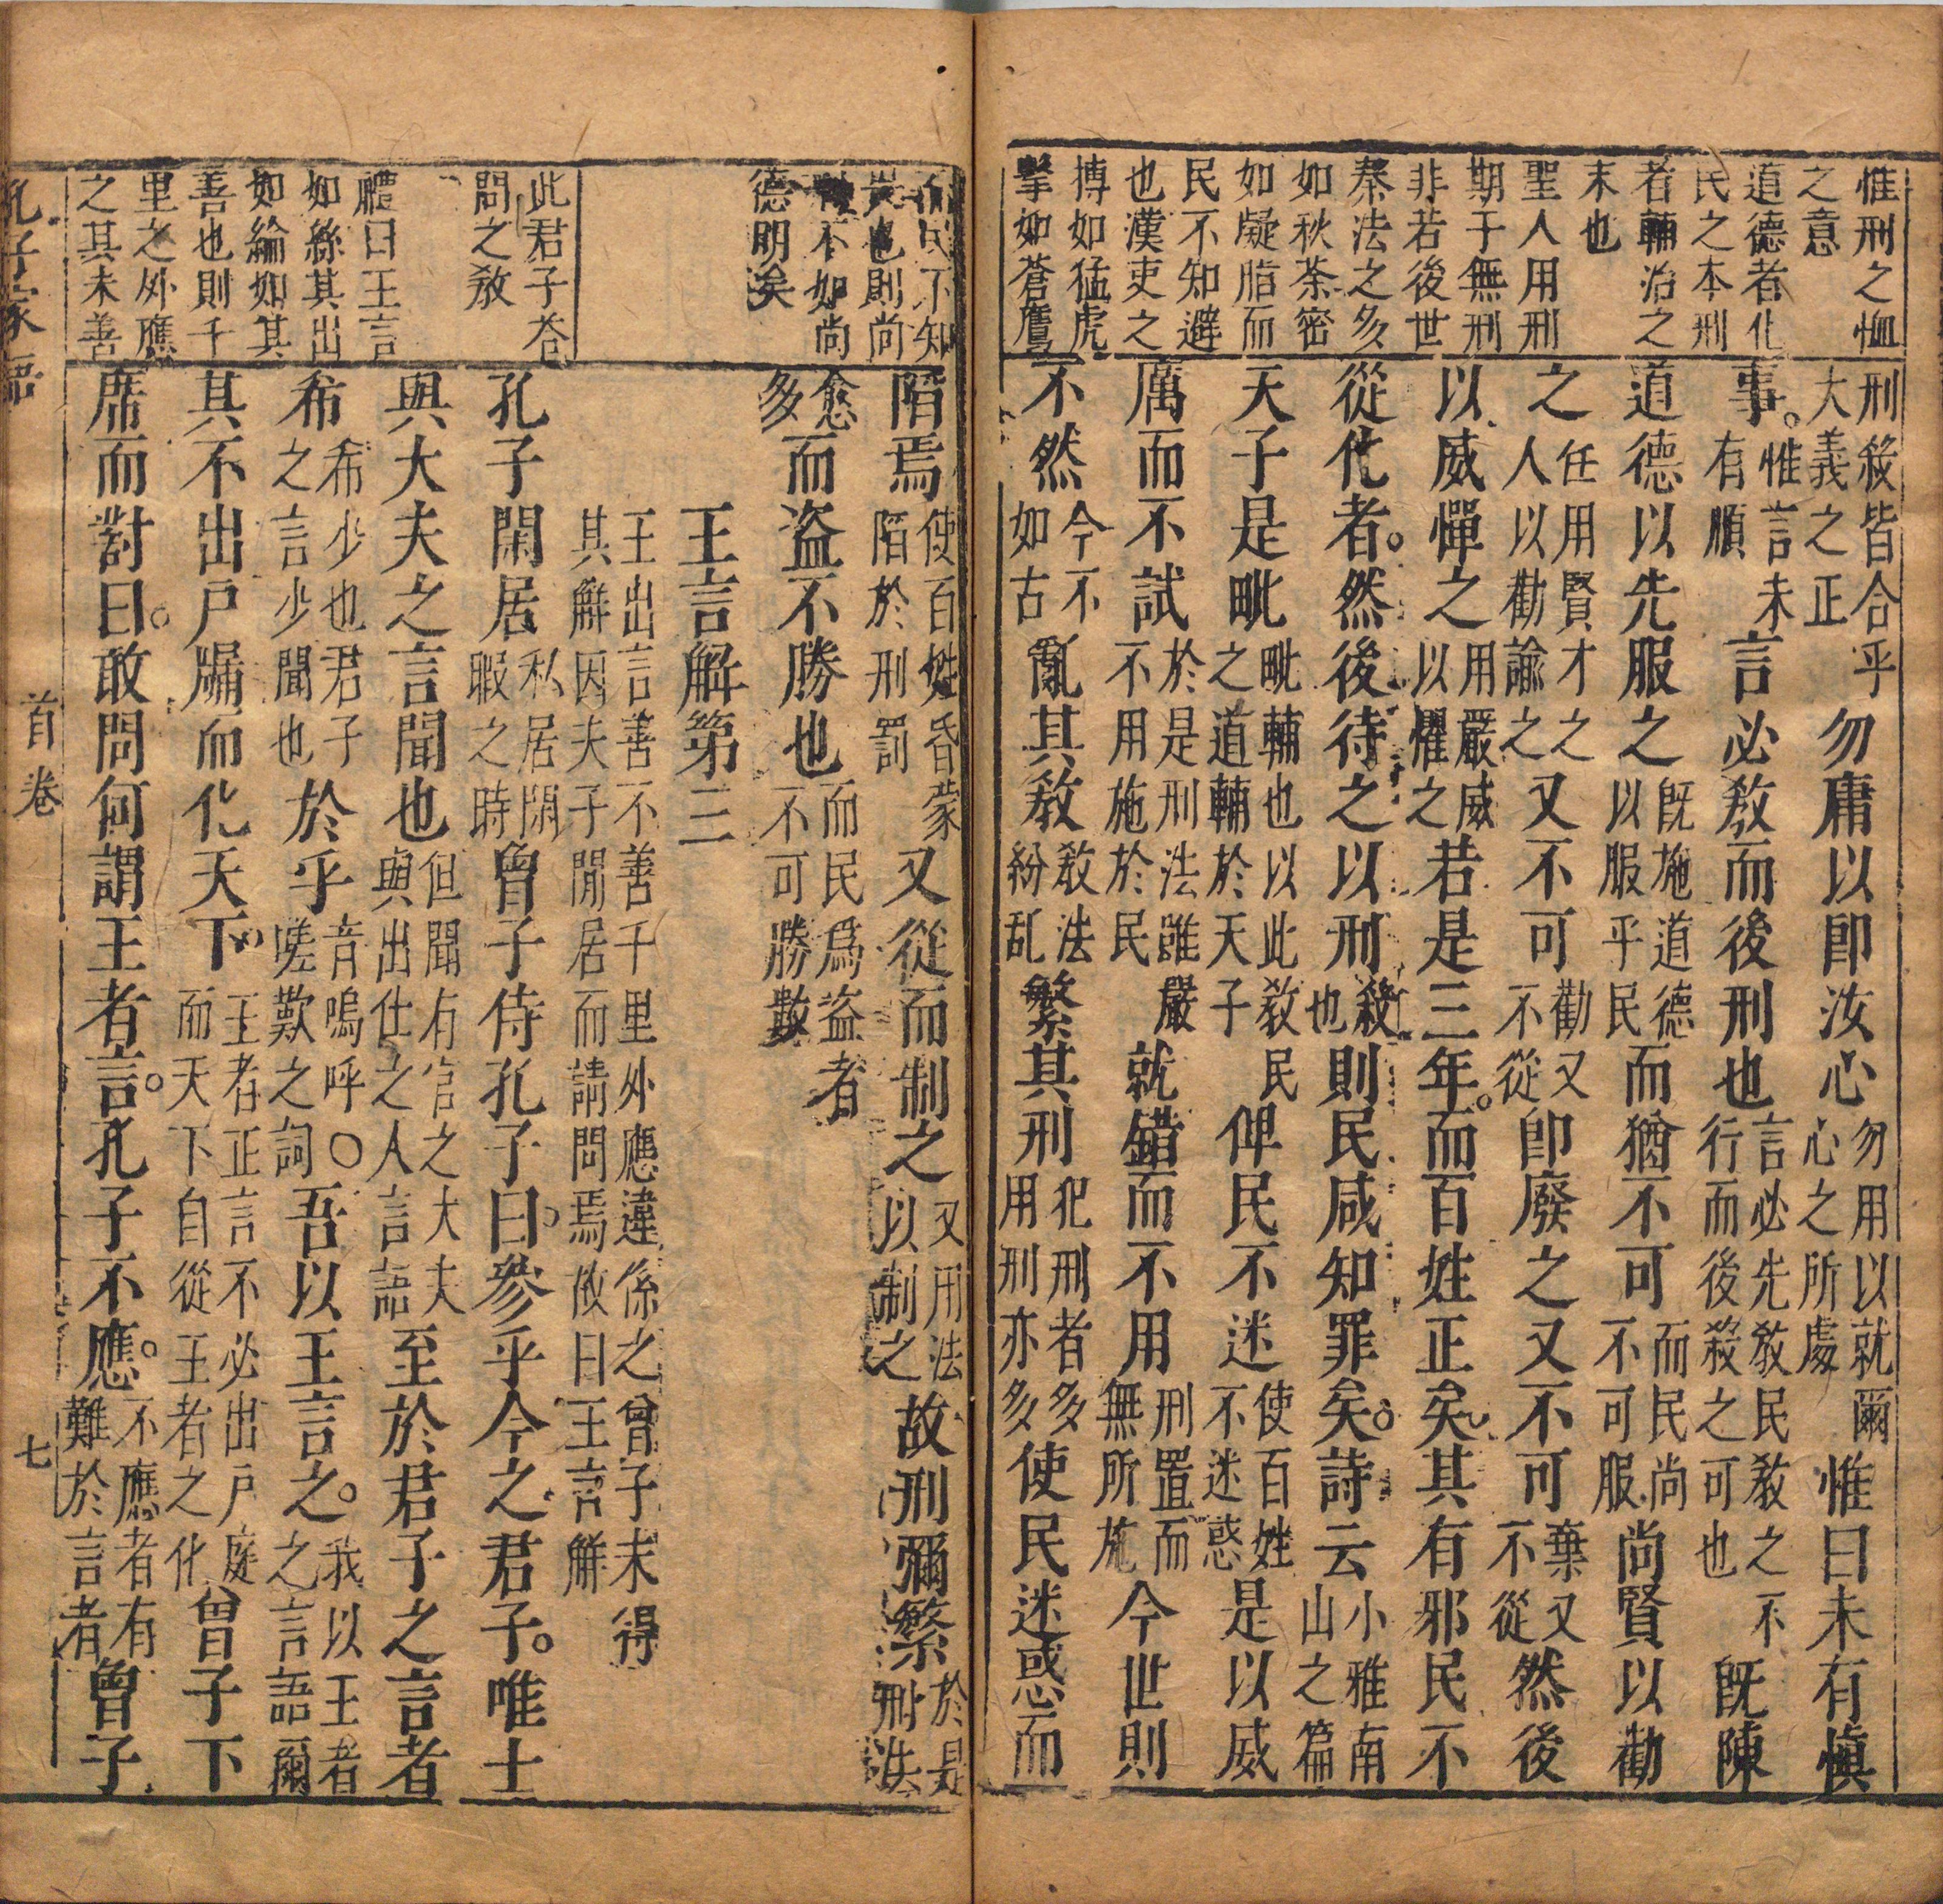 惟刑之恤
之意
道德者化
民之本刑
者輔治之
末也
聖人用刑
期于無刑
非若後世
秦法之多
如秋荼密
如凝脂而
民不知避
也漢吏之
搏如猛虎
擊如蒼鷹
刑殺皆合乎
大義之正
勿庸以卽汝心
勿用以就爾
心之所處
惟曰未有慎
事
惟言未
有順
言必敎而後刑也
言必先敎民敎之不
行而後殺之可也
旣陳
道德以先服之
旣施道德
以服乎民
而猶不可
而民尚
不可服
尚賢以勸
之
任用賢才之
人以勸諭之
又不可
勸又
不從
卽廢之又不可
棄又
不從
然後
以威憚之
用嚴威
以懼之
若是三年而百姓正矣其有邪民不
從化者然後待之以刑
殺
也
則民咸知罪矣詩云
小雅南
山之篇
天子是毗
毗輔也以此敎民
之道輔於天子
俾民不迷
使百姓
不迷惑
是以威
厲而不試
於是刑法雖嚴
不用施於民
就錯而不用
刑置而
無所施
今世則
不然
今不
如古
亂其敎
敎法
紛乱
繁其刑
犯刑者多
用刑亦多
使民迷惑而
不知
也則尚
不如尚
德明矣
陷焉
使百姓昏蒙
陷於刑罰
又從而制之
又用法
以制之
故刑彌繁
於是
刑法
愈
多
而盜不勝也
而民爲盜者
不可勝數
王言解第三
王出言善不善千里外應違係之曾子未得
其解因夫子閒居而請問焉故曰王言解
此君子荅
問之敎
禮曰王言
如絲其出
如綸如其
善也則千
里之外應
之其未善
孔子閑居
私居閒
暇之時
曾子侍孔子曰參乎今之君子唯士
與大夫之言聞也
但聞有官之大夫
與出仕之人言語
至於君子之言者
希
希少也君子
之言少聞也
於乎
音嗚呼〇
嗟歎之詞
吾以王言之
我以王者
之言語爾
其不出戶牖而化天下
王者正言不必出戶庭
而天下自從王者之化
曾子下
席而對曰敢問何謂王者言孔子不應
不應者有
難於言者
曾子
孔子家語
首卷
七